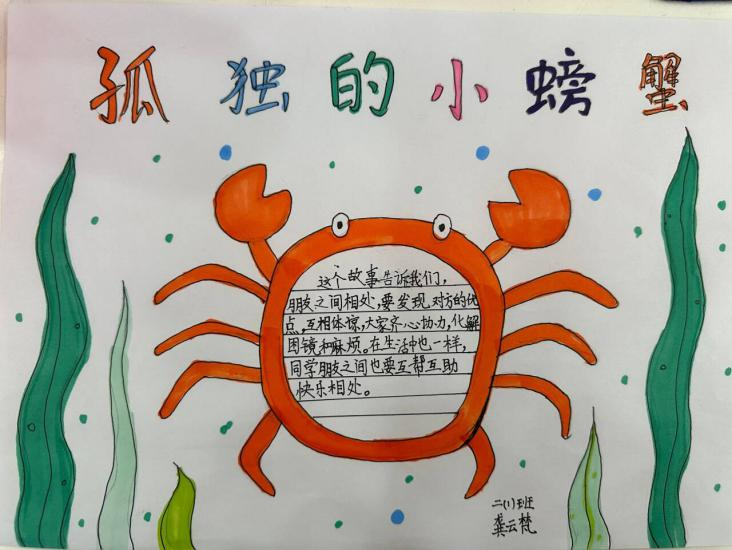 孤独的小螃蟹
这个故事告诉我们，
朋友之间相处，要发现对方的优
点，互相体惊，大家齐心协力，化解
困镜和麻烦。在生活中也一样，
同学朋友之间也要互帮互助
快乐相处。
二(1)班
龚云梵